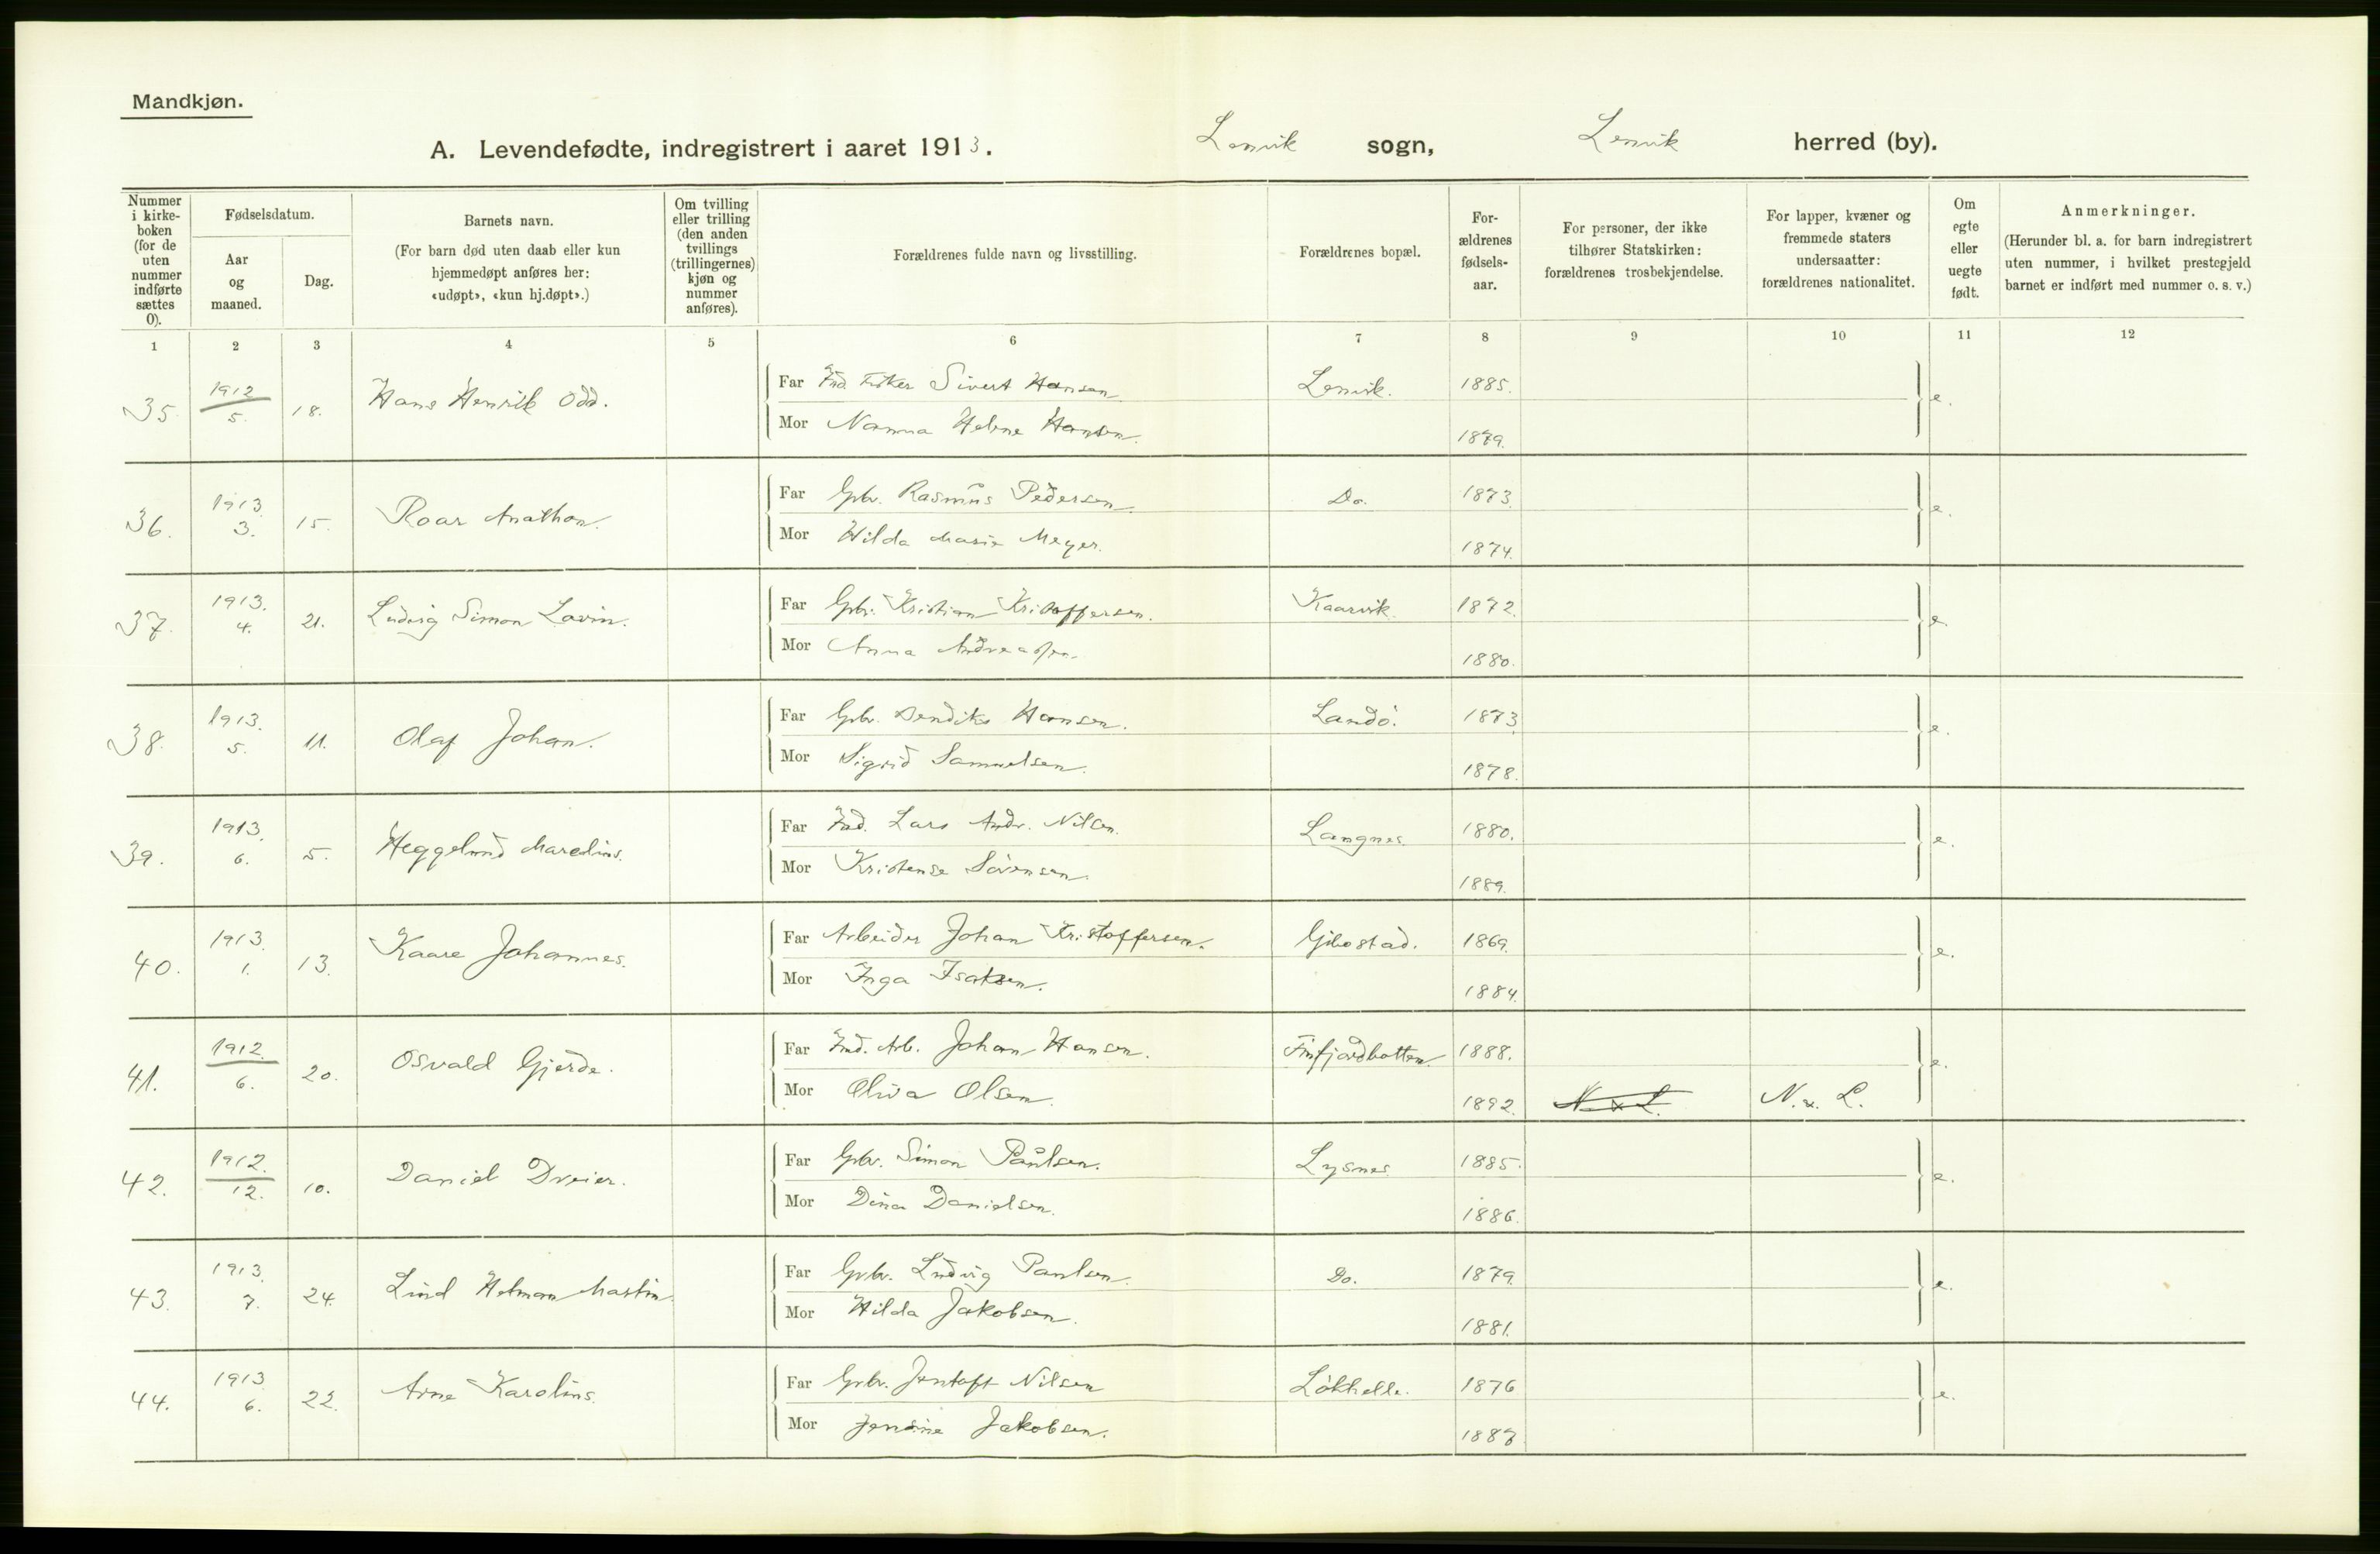 Mandkjøn.
A. Levendefødte, indregistrert i aaret 1913. Lenvik sogn, Lenvik herred (by).
Nummer i kirkeboken (for de uten nummer indførte sættes 0).
Fødselsdatum.
Aar og maaned.
Dag.
Barnets navn.
(For barn død uten daab eller kun hjemmedøpt anføres her: «udøpt», «kun hj.døpt».)
Om tvilling eller trilling (den anden tvillings (trillingernes) kjøn og nummer anføres).
Forældrenes fulde navn og livsstilling.
Forældrenes bopæl.
Forældrenes fødselsaar.
For personer, der ikke tilhører Statskirken: forældrenes trosbekjendelse.
For lapper, kvæner og fremmede staters undersaatter: forældrenes nationalitet.
Om egte eller uegte født.
Anmerkninger.
(Herunder bl. a. for barn indregistrert uten nummer, i hvilket prestegjeld barnet er indført med nummer o. s. v.)
1 2 3 4 5 6 7 8 9 10 11 12
35. 1912 5. 18. Hans Henrik Odd. Far Ind. Fisker Sivert Hansen Lenvik. 1885. e.
Mor Nanna Helene Hansen. 1879.
36. 1913. 3. 15. Roar Anathon. Far Gbr. Rasmus Pedersen. Do. 1873. e.
Mor Hilda Marie Meyer. 1874.
37. 1913. 4. 21. Ludvig Simon Lavin. Far Gbr. Kristian Kristoffersen. Kaarvik. 1872. e.
Mor Anna Andreassen. 1880.
38. 1913. 5. 11. Olaf Johan. Far Gbr. Bendiks Hansen. Landö. 1873. e.
Mor Sigrid Samuelsen. 1878.
39. 1913. 6. 5. Heggelund Marelius. Far Ind. Lars Andr. Nilsen. Langnes. 1880. e.
Mor Kristense Sörensen. 1889.
40. 1913. 1. 13. Kaare Johannes. Far Arbeider Johan Kristoffersen. Gibostad. 1869. e.
Mor Inga Isaksen. 1884.
41. 1912. 6. 20. Osvald Gjerde. Far Ind. Arb. Johan Hansen. Finfjordbotten. 1888. e.
Mor Oliva Olsen. 1892. N. x L. N. x. L.
42. 1912. 12. 10. Daniel Dreier. Far Gbr. Simon Paulsen. Lysnes. 1885. e.
Mor Dina Danielsen. 1886.
43. 1913. 7. 24. Lind Helman Martin. Far Gbr. Ludvig Paulsen. Do. 1879. e.
Mor Hilda Jakobsen. 1881.
44. 1913 6. 22. Arne Karolius. Far Gbr. Jentoft Nilsen Lökhelle. 1876 e.
Mor Jensine Jakobsen. 1887.